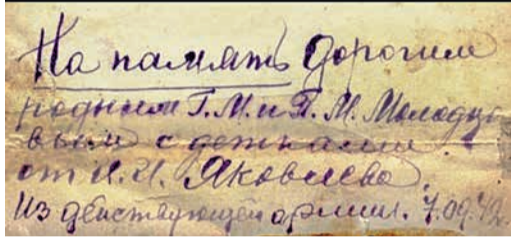 На память дорогим
родным Г. М. и П. М. Молодцо
вым с детками
от И. И. Яковлева.
Из действующей армии. 7.09.42.